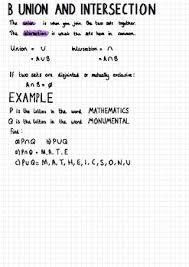 B UNION AND INTERSECTION
The union is when you join the two sets together
The intersection is what the sets have in common.
Union = ∪ Intersection = ∩
= A∪B = A∩B
If two sets are disjointed or mutually exclusive:
A∩B = ø
EXAMPLE
P is the letters in the word MATHEMATICS
Q is the letters in the word MONUMENTAL
Find:
a) P∩Q b) P∪Q
a) P∩Q = M, A, T, E
c) P∪Q = M, A, T, H, E, I, C, S, O, N, U